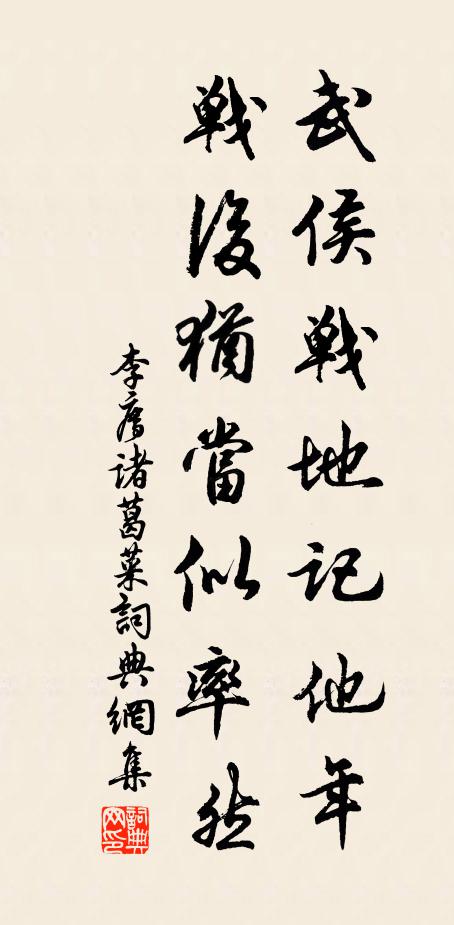 武侯戰地記他年
戰後猶當似率然
李廌諸葛菜詞典網集
詞典网印